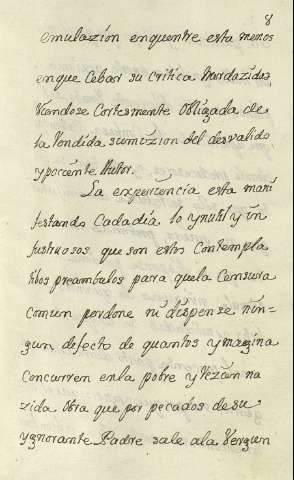 8
emulazion enquentre esta menos
enque Cebar su critica Mordazidad,
Viendose Cortesmente Obligada de
la Rendida sumizion del desvalido
y pociente Autor.
La experiencia esta mani
festando Cadadia lo ynutil y in
fustuosos que son estos Contempla
tibos preambulos para quela Censura
comun perdone ni dispense nin=
gun defecto de quantos ymagina
Concurren enla pobre y Rezien na
zida obra que por pecados de su
ygnorante Padre sale ala Verguen